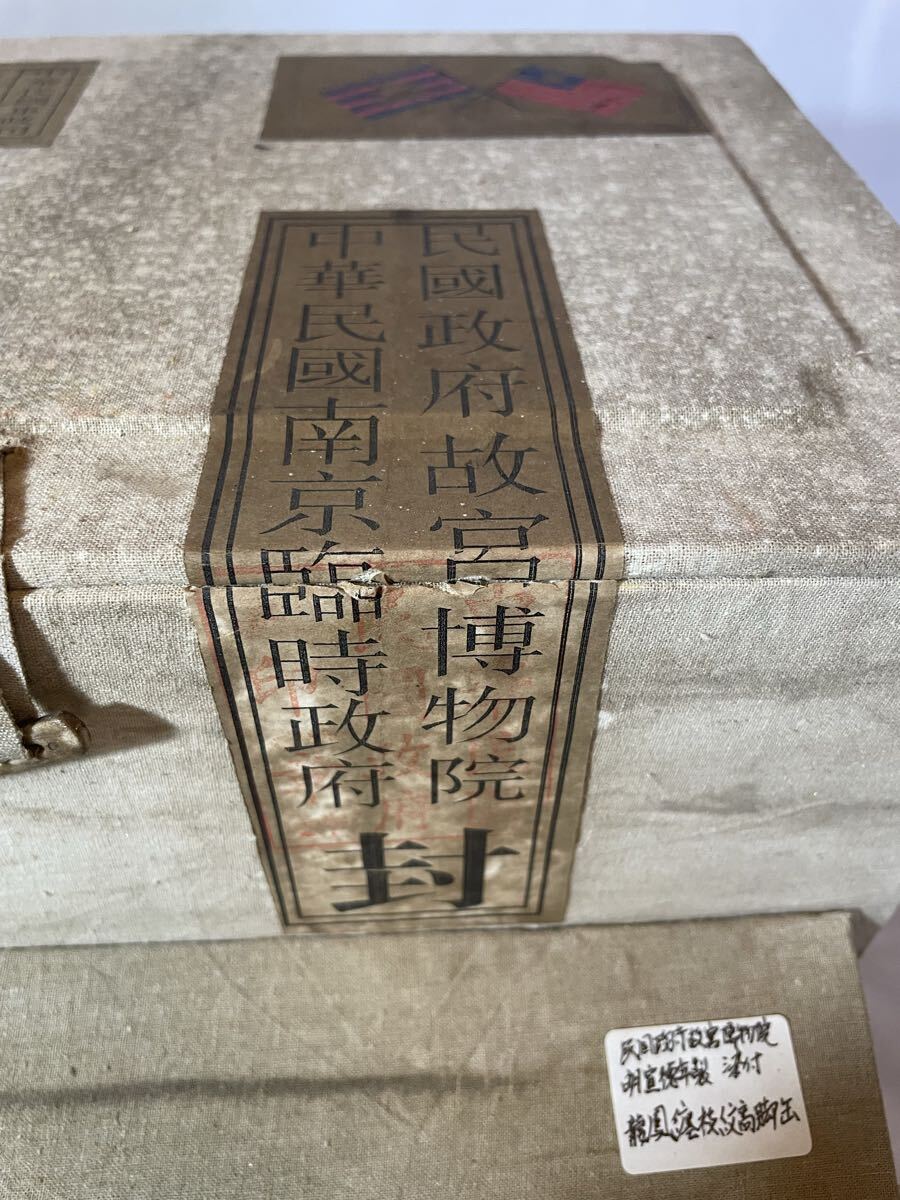 民國政府故宮博物院
中華民國南京臨時政府
封
民国政府故宮博物院
明宣德年製 添付
龍鳳纏枝紋高脚缶